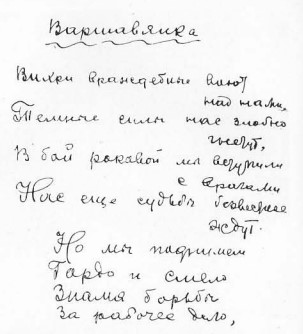 Варшавянка
Вихри враждебные веют
над нами,
Темные силы нас злобно
гнетут,
В бой роковой мы вступили
с врагами
Нас еще судьбы безвестные
ждут.
Но мы поднимем
Гордо и смело
Знамя борьбы
За рабочее дело,